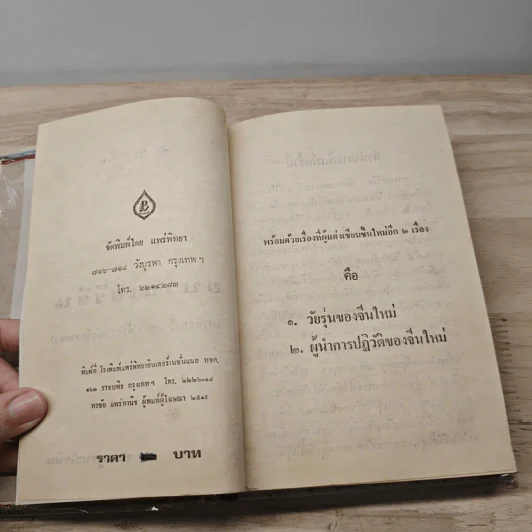 จัดพิมพ์โดย แพร่พิทยา
๗๑๖-๗๑๘ วังบูรพา กรุงเทพ ฯ
โทร. ๒๒๑๔๒๘๓
พิมพ์ที่ โรงพิมพ์แพร่พิทยาอินเตอร์เนชั่นแนล หจก.
ราชบพิธ กรุงเทพ ฯ โทร. ๒๒๒๖๐๑๘
ผู้พิมพ์ผู้โฆษณา ๒๕๑๙
ราคา บาท
พร้อมด้วยเรื่องที่ผู้แต่งเขียนขึ้นใหม่อีก ๒ เรื่อง
คือ
๑. วัยรุ่นของจีนใหม่
๒. ผู้นำการปฏิวัติของจีนใหม่